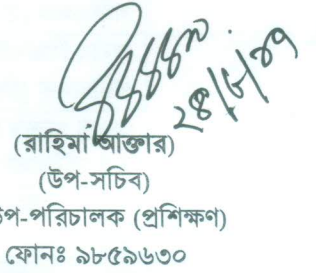 (রাহিমা আক্তার)
(উপ-সচিব)
উপ-পরিচালক (প্রশিক্ষণ)
ফোনঃ ৯৮৫৯৬৩০